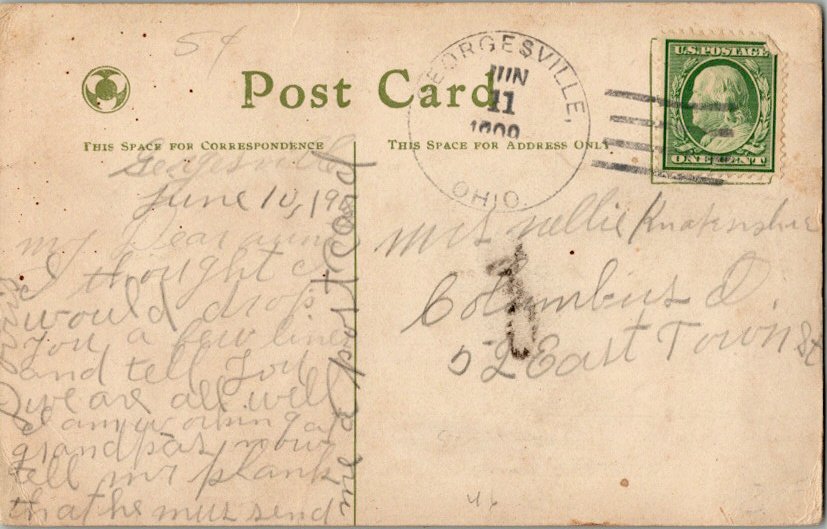 5¢
Post Card
THIS SPACE FOR CORRESPONDENCE
THIS SPACE FOR ADDRESS ONLY
GEORGESVILLE,
JUN
11
1909
OHIO.
U.S. POSTAGE
ONE CENT
Gergesville
June 10, 190
my Dear
I thought I
would drop
you a few lines
and tell you
we are all well
I am working at
grandpas now
tell mr plank
that he mus send
me a Post Card
Mrs Nellie
Columbus O.
52 East Town St
1